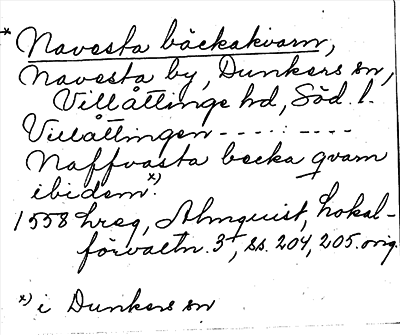 * Navesta bäckakvarn,
Navesta by, Dunkers sn,
Villåttinge hd, Söd. l.
Villåttingen - - - - : - - - -
Naffvasta becka qvarn
ibidem. x)
1558 hreg, Almquist, Lokal-
förvaltn. 3, ss. 204, 205. orig.
x) i Dunkers sn